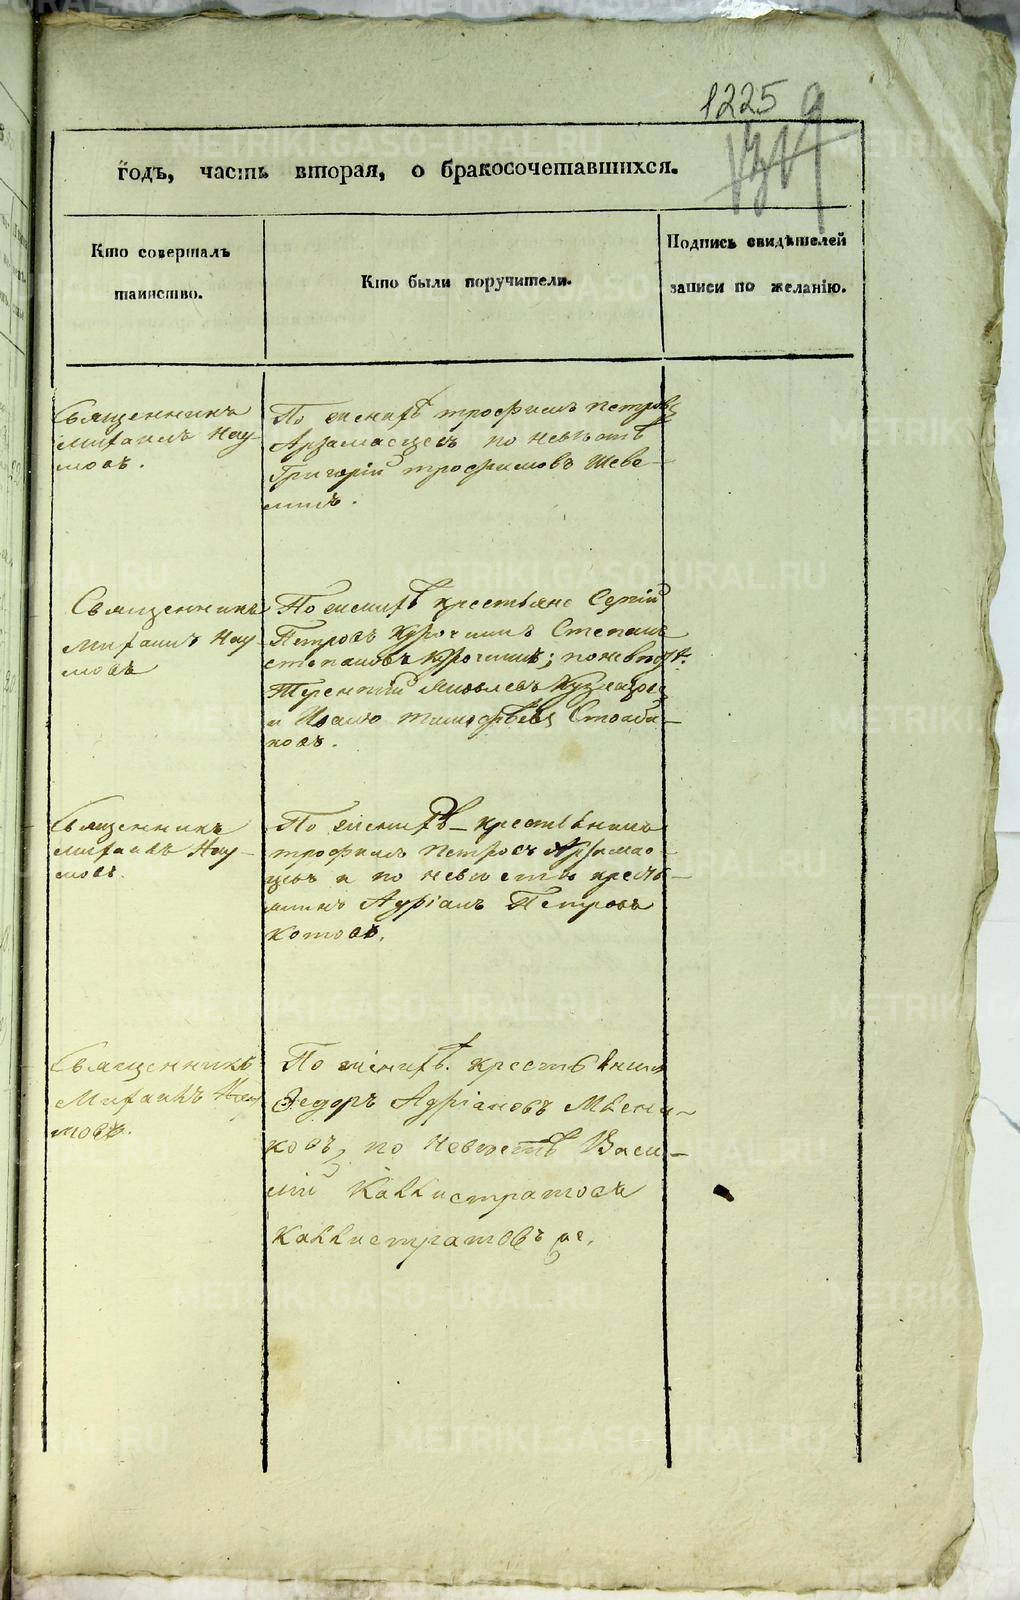 1225
годъ, часть вторая, о бракосочетавшихся.
Кто совершалъ
таинство.
Кто были поручители.
Подпись свидѣтелей
записи по желанію.
Священникъ
Михаилъ Нау-
мовъ.
По женихѣ трофимъ петровъ
Арзамасцевъ по невѣстѣ
Григорій трофимовъ Шеве-
линъ.
Священникъ
Михаилъ Нау-
мовъ
По женихѣ крестьяне Сергій
Петровъ Курочкинъ Степанъ
степановъ Курочкинъ; по невѣстѣ.
Терентій Яковлевъ
и Тимофѣевъ
новъ.
Священникъ
михаилъ Нау-
мовъ.
По женихѣ крестьянинъ
трофимъ Петровъ Арзамас-
цовъ и по невѣстѣ кресть-
янинъ Адріанъ Петровъ
Котовъ.
Священникъ
Михаилъ Нау-
мовъ.
По женихѣ. крестьянинъ
Ѳедоръ Адріановъ Мѣсни-
ковъ, по невѣстѣ Васи-
лій Каллистратовъ
Каллистратовъ же.
METRIKI.GASO-URAL.RU